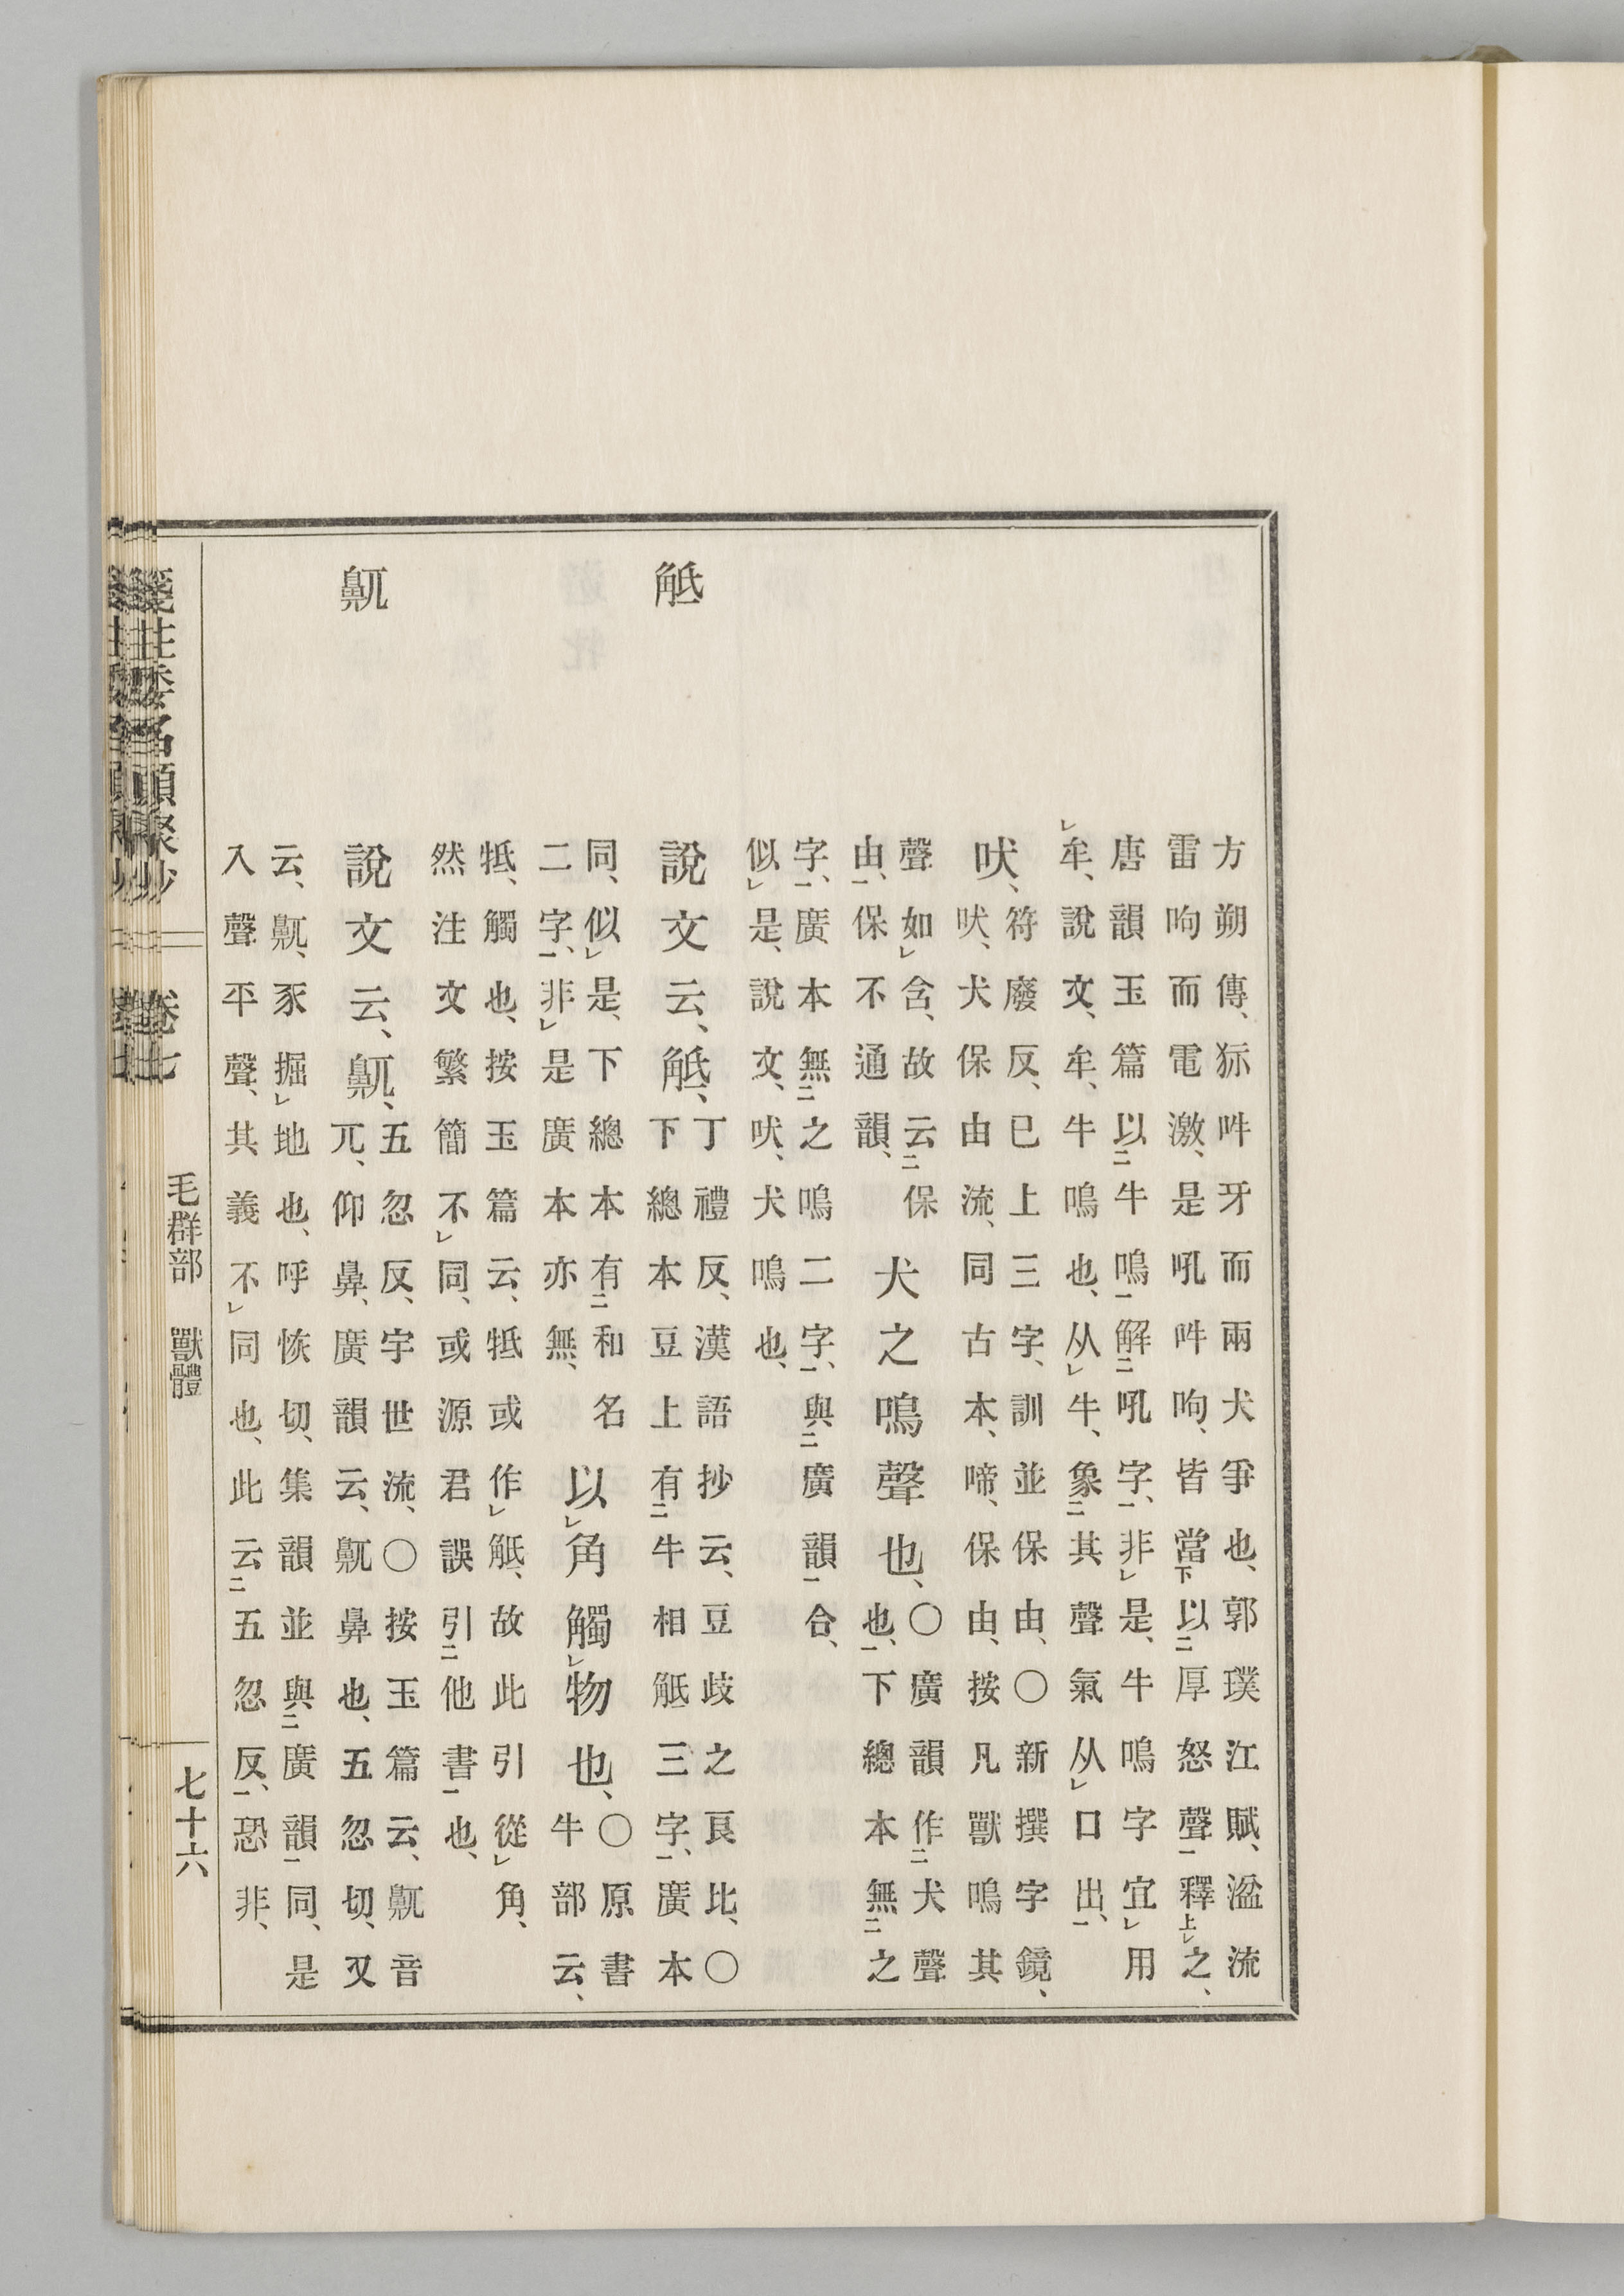 方朔傳、狋吽牙而兩犬爭也、郭璞江賦、湓流
雷呴而電激、是吼吽呴、皆當下以二厚怒聲一釋上レ之、
唐韻玉篇以二牛鳴一解二吼字一、非レ是、牛鳴字宜レ用
レ牟、說文、牟、牛鳴也、从レ牛、象二其聲氣从レ口出一、
吠、
符廢反、已上三字、訓並保由、〇新撰字鏡、
吠、犬保由流、同古本、啼、保由、按凡獸鳴其
聲如レ含、故云二保
由一、保不通韻、
犬之鳴聲也、
〇廣韻作二犬聲
也一、下總本無二之
字一、廣本無二之鳴二字一、與二廣韻一合、
似レ是、說文、吠、犬鳴也、
觝
說文云、觝、
丁禮反、漢語抄云、豆歧之良比、〇
下總本豆上有二牛相觝三字一、廣本
同、似レ是、下總本有二和名
二字一、非レ是廣本亦無、
以レ角觸レ物也、
〇原書
牛部云、
牴、觸也、按玉篇云、牴或作レ觝、故此引從レ角、
然注文繁簡不レ同、或源君誤引二他書一也、
鼿
說文云、鼿、
五忽反、宇世流、〇按玉篇云、鼿音
兀、仰鼻、廣韻云、鼿鼻也、五忽切、又
云、鼿、豕掘レ地也、呼恢切、集韻並與二廣韻一同、是
入聲平聲、其義不レ同也、此云二五忽反一、恐非、
箋注倭名類聚抄 卷七 毛群部 獸體 七十六